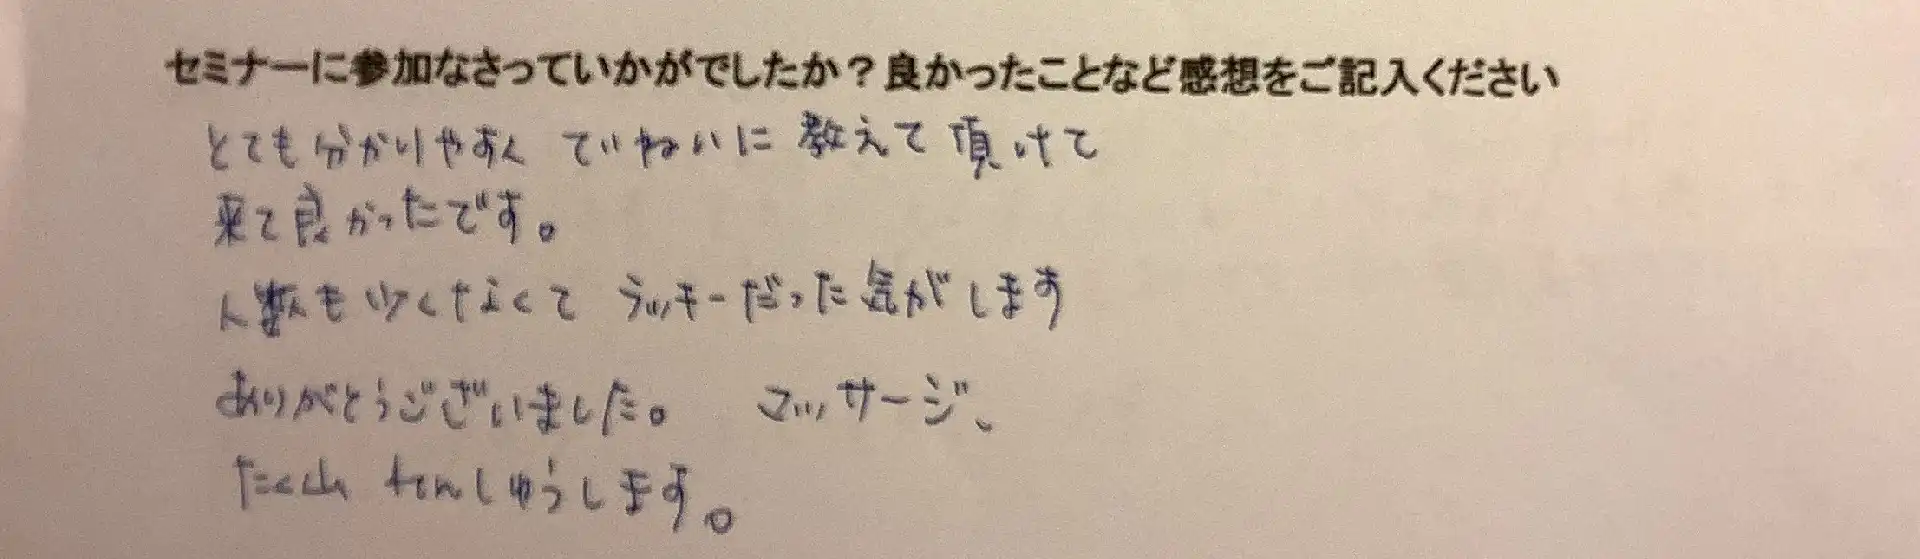 セミナーに参加なさっていかがでしたか？良かったことなど感想をご記入ください
とても分かりやすく ていねいに 教えて頂けて
来て良かったです。
人数も少くなくて ラッキーだった気がします
ありがとうございました。 マッサージ、
たく山 れんしゅうします。